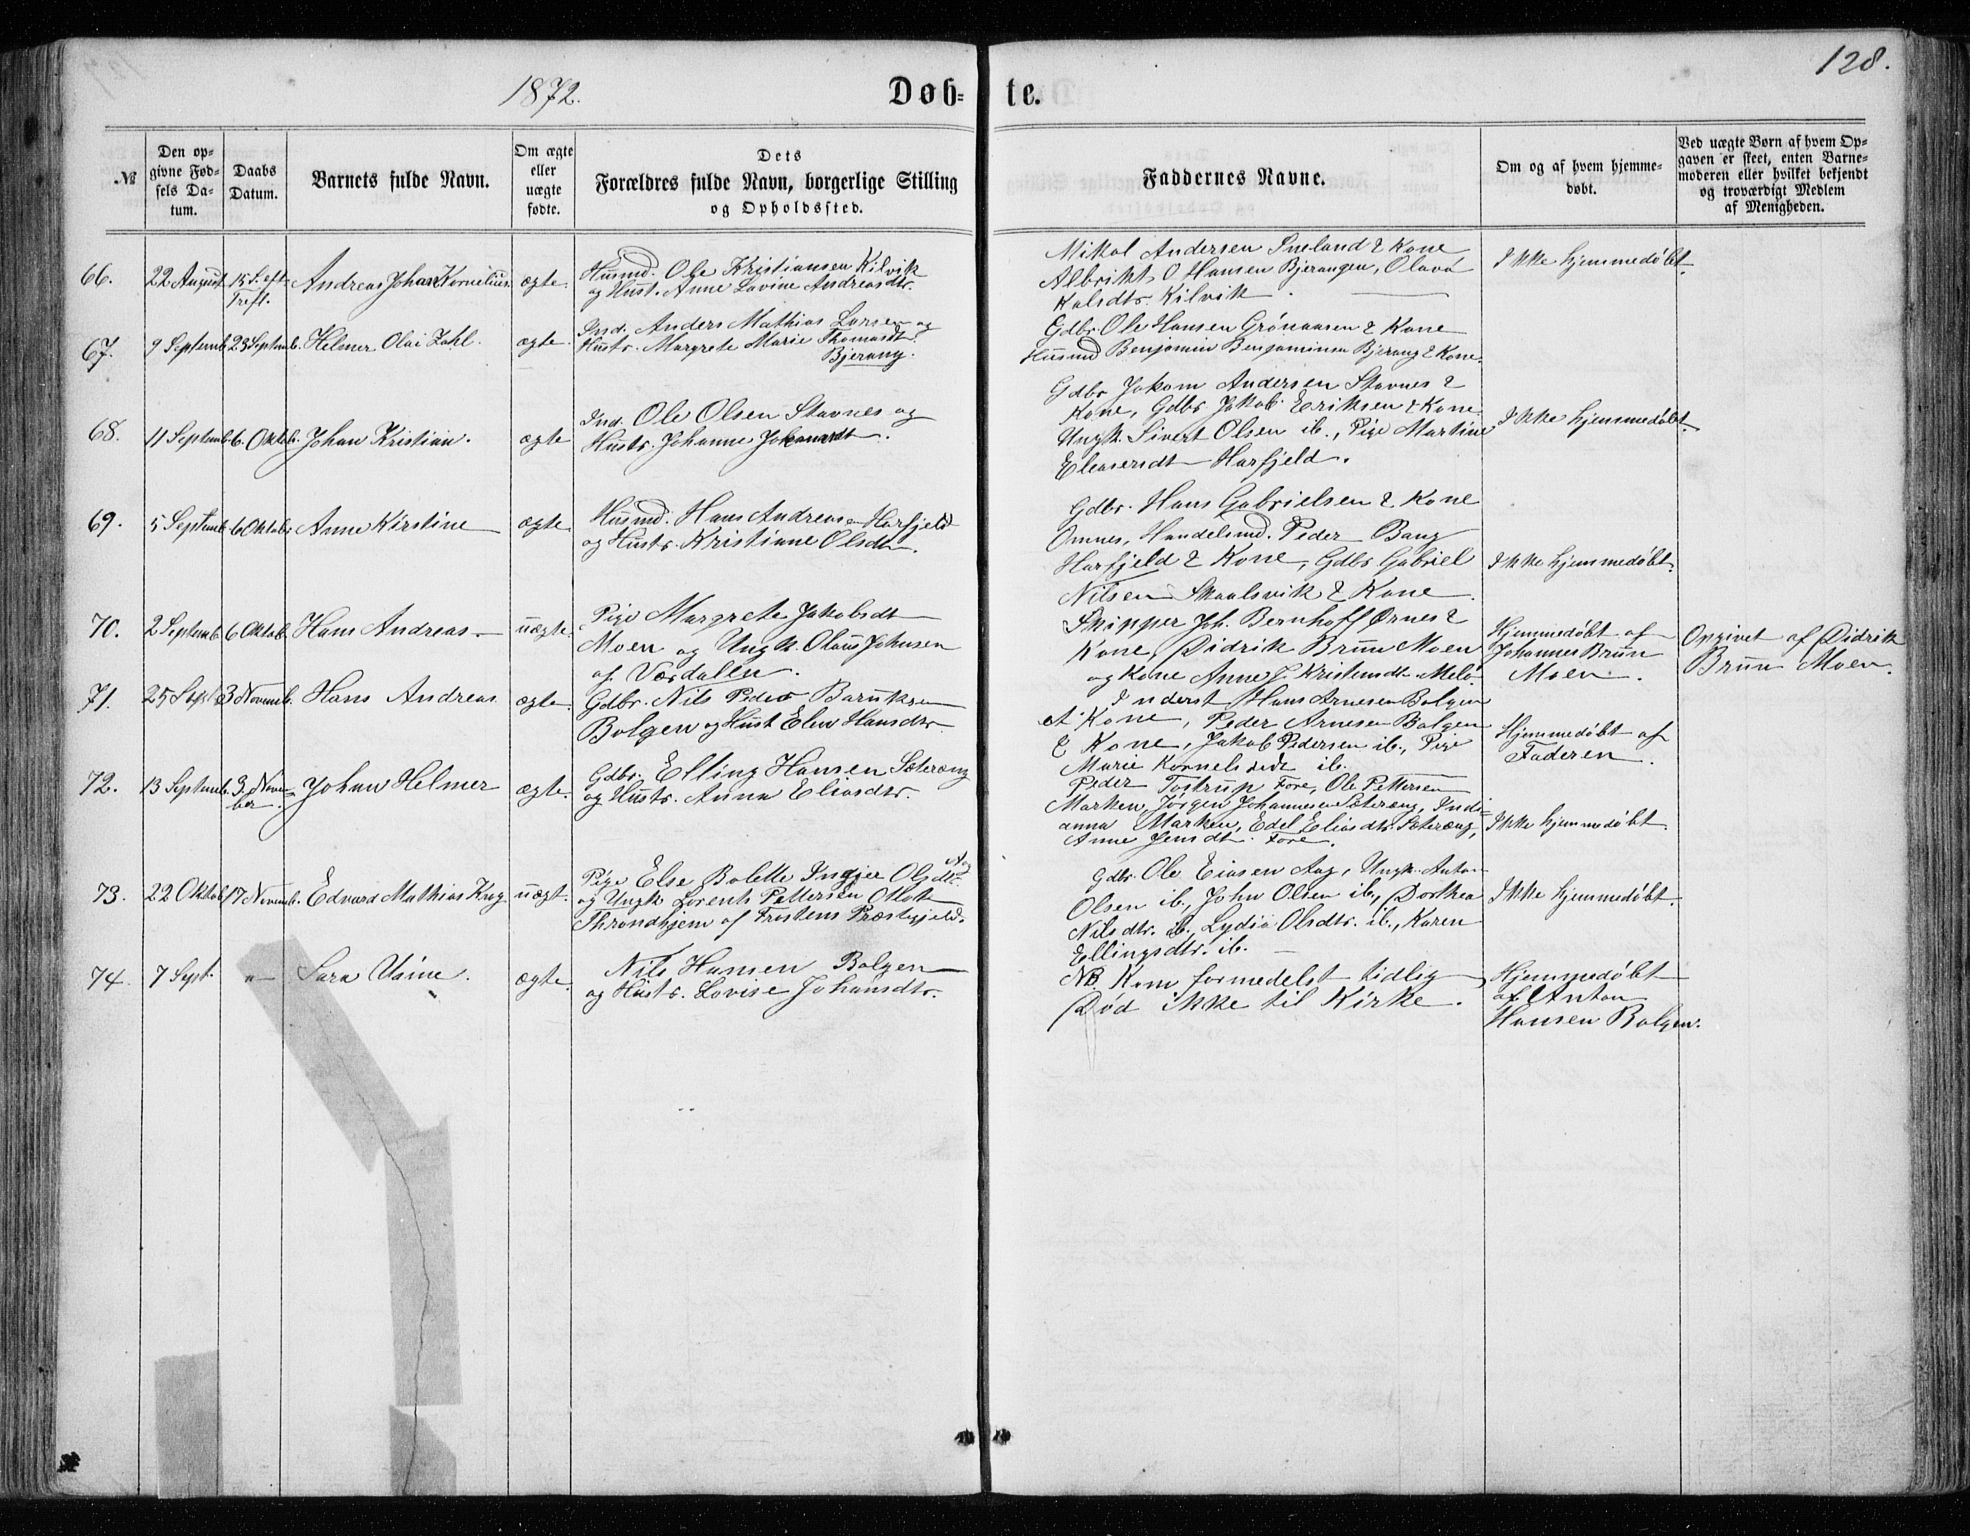 128.
1872.
Døb- te.
№
Den op-
givne Fød-
sels Da-
tum.
Daabs
Datum.
Barnets fulde Navn.
Om ægte
eller
uægte
fødte.
Dets
Forældres fulde Navn, borgerlige Stilling
og Opholdssted.
Faddernes Navne.
Om og af hvem hjemme-
døbt.
Ved uægte Børn af hvem Op-
gaven er skeet, enten Barne-
moderen eller hvilket bekjendt
og troværdigt Medlem
af Menigheden.
66.
22 August
15 S. eft.
Tref.
Andreas Johan Kornelius.
ægte.
Husmd. Ole Kristiansen Kilvik
og Hust. Anne Lovine Andreasdtr.
Mikal Andersen Sneland & Kone
Albrikt O Hansen Bjerangen, Olava
Kalsdtr. Kilvik
Ikke hjemmedøbt.
67.
9 Septemb.
23 Septemb.
Helmer Olai Zahl.
ægte
Ind. Anders Mathias Larsen og
Hustr. Margrete Marie Thomasdt.
Bjerang.
Gdbr. Ole Hansen Grønaasen & Kone
Husmd Benjamin Benjaminsen Bjerang & Kone.
68.
11 Septemb.
6. Oktob.
Johan Kristian.
ægte
Ind. Ole Olsen Stavnes og
Hustr. Johanne Johansdt.
Gdbr Jakom Andersen Stavnes &
Kone, Gdbr Jakob Eriksen & Kone
Ungk. Sivert Olsen ib., Pige Martine
Eleasersdt Harfjeld.
Ikke hjemmedøbt.
69.
5 Septemb.
6 Oktob.
Anne Kirstine
ægte
Husmd. Hans Andreasen Harfjeld
og Hustr. Kristianne Olsdtr.
Gdbr. Hans Gabrielsen & Kone
Omnes, Handelsmd. Peder Bang
Harfjeld & Kone, Gdbr Gabriel
Nilsen Skaalsvik & Kone.
Ikke hjemmedøbt.
70.
2 Septemb.
6 Oktob.
Hans Andreas.
uægte.
Pige Margrete Jakobsdt
Moen og Ungk. Olaus Johnsen
af Værdalen.
Skipper Joh. Bernhoff Ørnes &
Kone, Didrik Bruun Moen
og Kone Anne J. Kristensdt. Melø.
Hjemmedøbt af
Johannes Bruun
Moen.
Opgivet af Didrik
Bruun Moen.
71.
25 Sept.
3 Novemb.
Hans Andreas
ægte.
Gdbr. Nils Peder Baruksen
Bolgen og Hust Elen Hansdtr.
Inderst Hans Arnesen Bolgen
& Kone, Peder Arnesen Bolgen
& Kone, Jakob Pedersen ib., Pige
Marie Kornelsdt ib.
Hjemmedøbt af
Faderen.
72.
13 Septemb.
3 Novem-
ber.
Johan Helmer
ægte.
Gdbr. Elling Hansen Sæterong
og Hustr. Anna Eliasdtr.
Peder Tostrup Fore, Ole Pettersen
Marken, Jørgen Johannesen Sæterøng, Indi-
anna Marken, Edel Eliasdtr. Sæterøng,
Anne Jensdt. Fore.
Ikke hjemmedøbt.
73.
22 Oktob.
17 Novemb.
Edvard Mathias Krog
uægt.
Pige Else Bolette Ingjer Olsdt. Aag
og Ungk Lorents Pettersen
Throndhjem af Frostens Præstegjeld.
Gdbr. Ole Eiasen Aag, Ungk. Anton
Olsen ib., John Olsen ib., Dorthea
Nilsdtr. ib., Lydia Olsdtr. ib., Karen
Ellingsdtr. ib.
Ikke hjemmedøbt.
74.
7 Sept.
"
Sara Usine.
ægte.
Nils Hansen Bolgen
og Hustr. Lovise Johansdtr.
NB. Kom formedelst tidlig
Død ikke til Kirke.
Hjemmedøbt
af Anton
Hansen Bolgen.